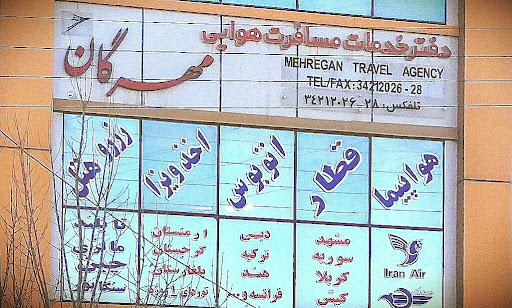 دفتر خدمات مسافرت هوایی
مهرگان
MEHREGAN TRAVEL AGENCY
TEL/FAX: 34212026 - 28
تلفکس: ۲۸-۳۴۲۱۲۰۲۶
هواپیما
قطار
اتوبوس
اخذ ویزا
رزرو هتل
Iran Air
مشهد
سوریه
کربلا
کیش
دبی
ترکیه
هند
فرانسه و ...
ارمنستان
گرجستان
بلغارستان
تورهای
تایلند
مالزی
چین
سنگاپور